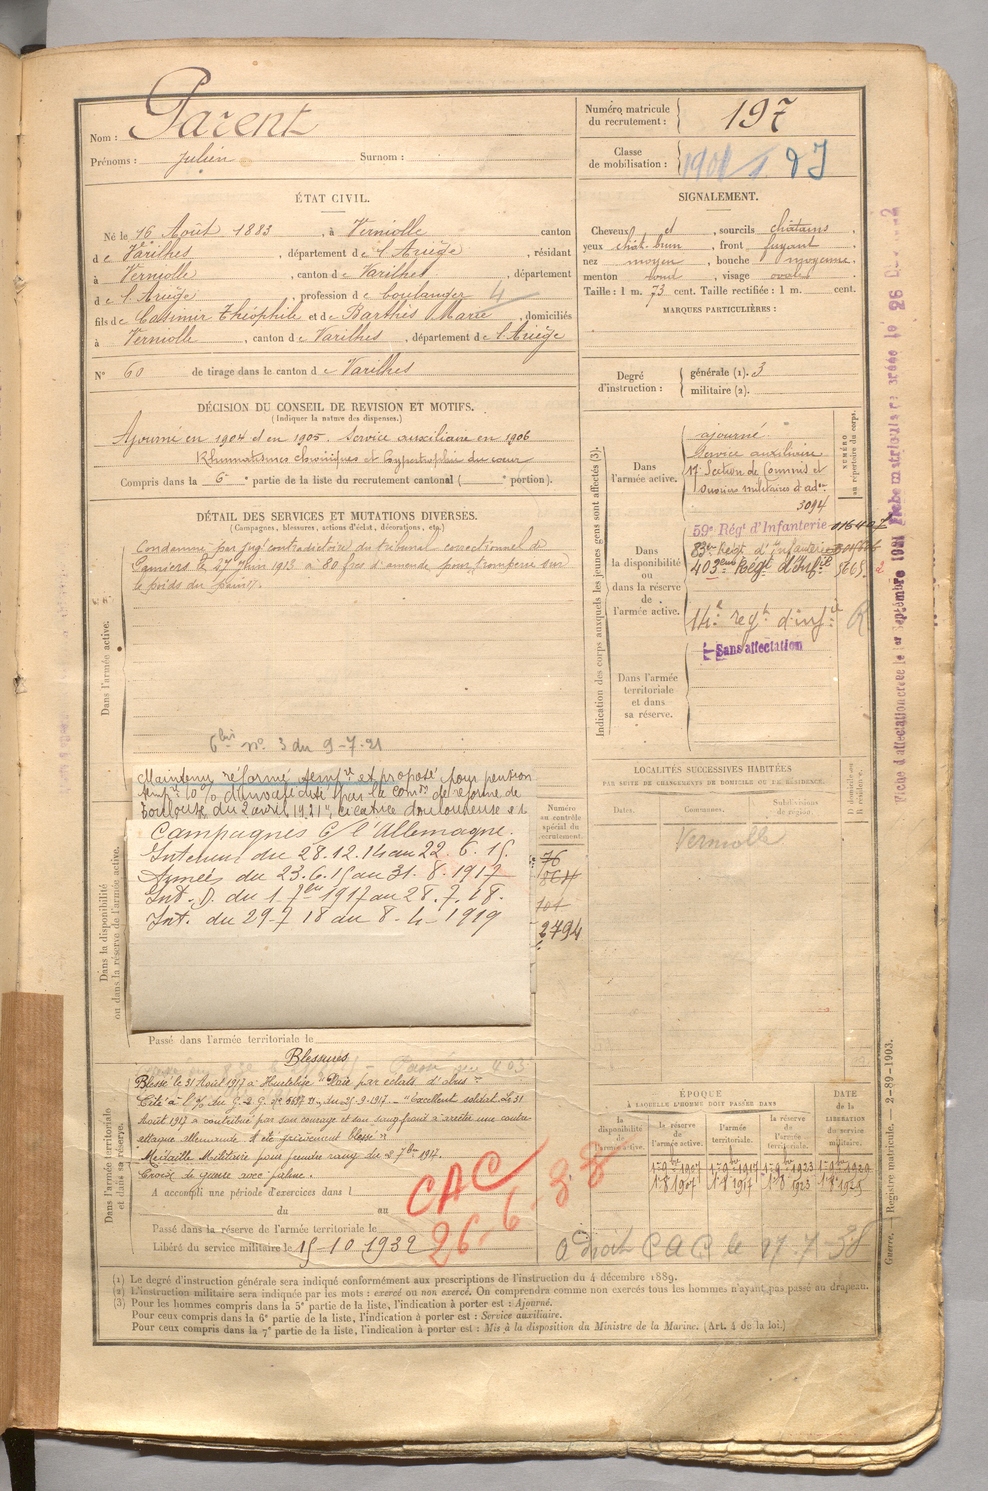 Nom : Parent
Prénoms : Julien Surnom :
Numéro matricule du recrutement : 197
Classe de mobilisation : 1901
ÉTAT CIVIL.
Né le 16 Août 1883, à Verniolle canton
de Varilhes, département de l'Ariège, résidant
à Verniolle, canton de Varilhes, département
de l'Ariège, profession de boulanger 4
fils de Casimir Théophile et de Barthes Marie, domiciliés
à Verniolle, canton de Varilhes, département de l'Ariège
N° 60 de tirage dans le canton de Varilhes
SIGNALEMENT.
Cheveux et, sourcils châtains
yeux chât. brun, front fuyant
nez moyen, bouche moyenne.
menton rond, visage ovale
Taille : 1 m. 73 cent. Taille rectifiée : 1 m. cent.
MARQUES PARTICULIÈRES :
Degré d'instruction : générale (1). 3
militaire (2).
DÉCISION DU CONSEIL DE REVISION ET MOTIFS.
(Indiquer la nature des dispenses.)
Ajourné en 1904 et en 1905. Service auxiliaire en 1906
Rhumatismes chroniques et hypertrophie du coeur
Compris dans la 6e partie de la liste du recrutement cantonal ( e portion).
DÉTAIL DES SERVICES ET MUTATIONS DIVERSES.
(Campagnes, blessures, actions d'éclat, décorations, etc.)
Dans l'armée active.
Condamné par jugt contradictoire du tribunal correctionnel de
Pamiers le 27 Juin 1913 à 50 frcs d'amende pour tromperie sur
le poids du pain.
6bis n° 3 du 9-7-21
Dans la disponibilité ou dans la réserve de l'armée active.
Maintenu réformé tempre et proposé pour pension
tempre 10 % d'invalidité par la comon de réforme de
Toulouse du 2 avril 1921 "cicatrice douloureuse
Campagnes C/ l'Allemagne.
Intérieur du 28.12.14 au 22.6.15.
Armées du 23.6.15 au 31.8.1917
Int. D. du 1 7bre 1917 au 28.7.18.
Int. du 29-7 18 au 8-4-1919
Numéro au contrôle spécial du recrutement.
76
101
2794
Passé dans l'armée territoriale le
Blessures
Dans l'armée territoriale et dans sa réserve.
Blessé le 31 Août 1917 à Hurtebise "Plaie par éclats d'obus"
Cité à l'O. du G.Q.G. n° 5697 D, du 25-9-1917. "Excellent soldat. Le 31
Août 1917 a contribué par son courage et son sang-froid à arrêter une contre-
attaque allemande. A été grièvement blessé"
Médaille Militaire pour prendre rang du 2 7bre 1917.
Croix de guerre avec palme.
A accompli une période d'exercices dans l
du au
Passé dans la réserve de l'armée territoriale le
Libéré du service militaire le 15-10 1932
CAC
26-6-38
A droit CAC le 27-7-38
Indication des corps auxquels les jeunes gens sont affectés (3).
NUMÉRO au répertoire du corps.
Dans l'armée active.
ajourné.
Service auxiliaire
17e Section de Commis et
Ouvriers militaires d'adon
3094
Dans la disponibilité ou dans la réserve de l'armée active.
59e Régt d'Infanterie 016407
83e Régt d'Infanterie
403eme Régt d'Infie 5665
14e regt d'infie R
Sans affectation
Dans l'armée territoriale et dans sa réserve.
LOCALITÉS SUCCESSIVES HABITÉES
PAR SUITE DE CHANGEMENTS DE DOMICILE OU DE RÉSIDENCE.
Dates. Communes. Subdivisions de région. D domicile ou R résidence.
Verniolle
ÉPOQUE
À LAQUELLE L'HOMME DOIT PASSER DANS
la disponibilité de l'armée active. la réserve de l'armée active. l'armée territoriale. la réserve de l'armée territoriale. DATE de la LIBÉRATION du service militaire.
1er 9bre 1907 1er 9bre 1917 1er 9bre 1923 1er 9bre 1929
(1) Le degré d'instruction générale sera indiqué conformément aux prescriptions de l'instruction du 4 décembre 1889.
(2) L'instruction militaire sera indiquée par les mots : exercé ou non exercé. On comprendra comme non exercés tous les hommes n'ayant pas passé au drapeau.
(3) Pour les hommes compris dans la 5e partie de la liste, l'indication à porter est : Ajourné.
Pour ceux compris dans la 6e partie de la liste, l'indication à porter est : Service auxiliaire.
Pour ceux compris dans la 7e partie de la liste, l'indication à porter est : Mis à la disposition du Ministre de la Marine. (Art. 4 de la loi.)
Guerre. — Registre matricule. — 2-89-1903.